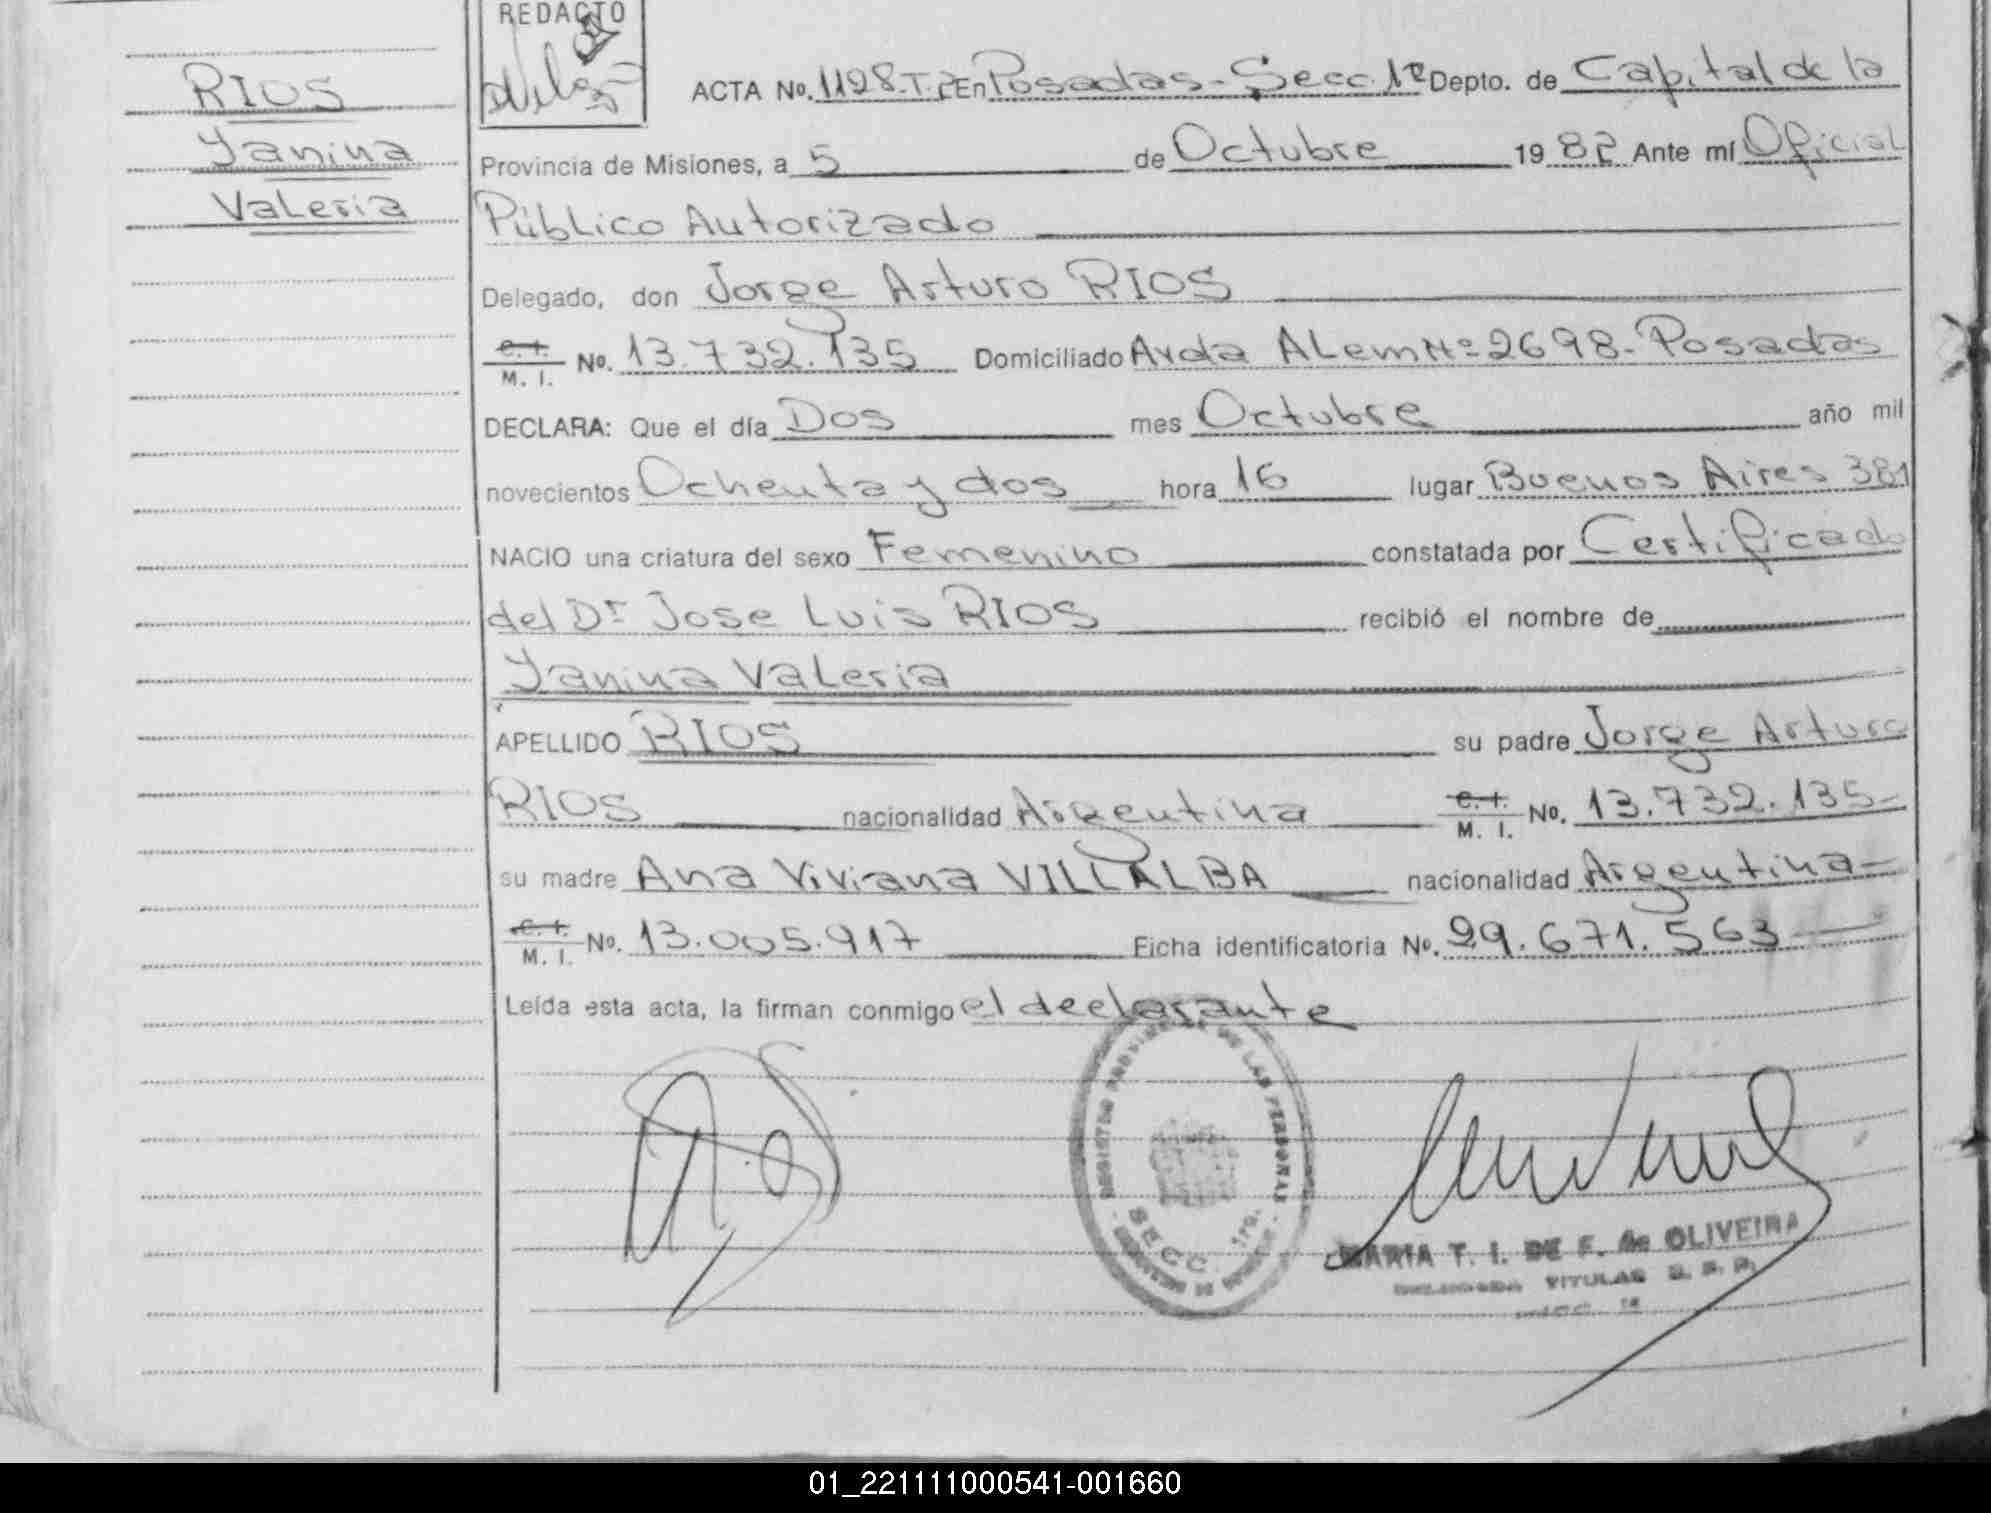 RIOS
Yanina
Valeria
REDACTO
ACTA No. 1128. T. 2 En Posadas - Secc. 1ª Depto. de Capital de la
Provincia de Misiones, a 5 de Octubre 1982 Ante mí Oficial
Público Autorizado
Delegado, don Jorge Arturo RIOS
C. I. M. I. No. 13.732.135 Domiciliado Avda ALem Nº 2698 - Posadas
DECLARA: Que el día Dos mes Octubre año mil
novecientos Ochenta y dos hora 16 lugar Buenos Aires 381
NACIO una criatura del sexo Femenino constatada por Certificado
del Dr Jose Luis RIOS recibió el nombre de
Yanina Valeria
APELLIDO RIOS su padre Jorge Arturo
RIOS nacionalidad Argentina C. I. M. I. No. 13.732.135-
su madre Ana Viviana VILLALBA nacionalidad Argentina-
C. I. M. I. No. 13.005.917 Ficha identificatoria No. 29.671.563
Leída esta acta, la firman conmigo el declarante
REGISTRO PROVINCIAL DE LAS PERSONAS
SECC. 1ra.
MARIA T. I. DE F. de OLIVEIRA
DELEGADA TITULAR R. P. P.
SECC. 1ª
01_221111000541-001660